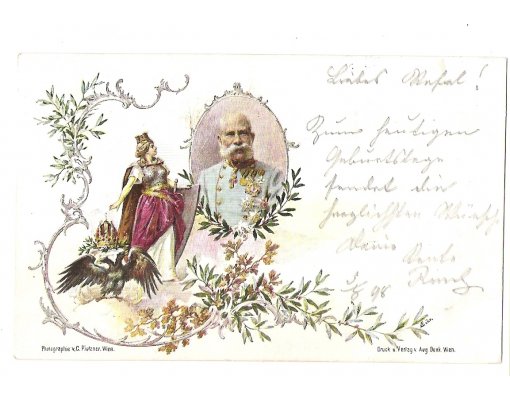 Liebes
Zum heutigen
Geburtstage
sendet die
herzlichsten Wünsch
Deine Tante
98
Photographie v. C. Pietzner, Wien.
Druck u. Verlag v. Aug. Denk, Wien.